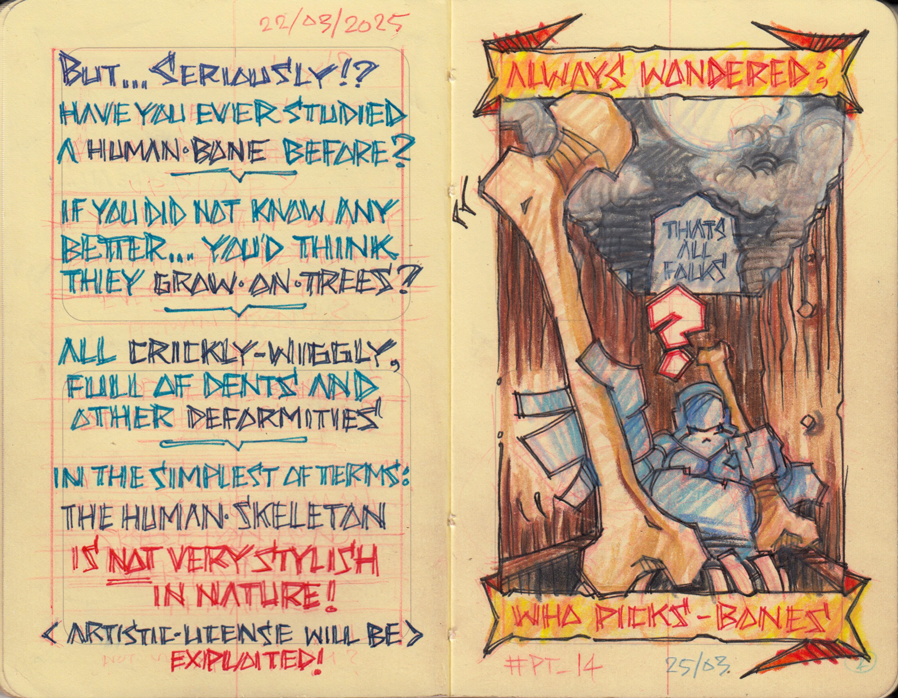 22/03/2025
BUT... SERIOUSLY!?
HAVE YOU EVER STUDIED
A HUMAN·BONE BEFORE?
IF YOU DID NOT KNOW ANY
BETTER... YOU'D THINK
THEY GROW·ON·TREES?
ALL CRICKLY-WIGGLY,
FULL OF DENTS AND
OTHER DEFORMITIES
IN THE SIMPLEST OF TERMS:
THE HUMAN·SKELETON
IS NOT VERY STYLISH
IN NATURE!
<ARTISTIC-LICENSE WILL BE>
EXPLOITED!
ALWAYS WONDERED:
THATS
ALL
FOLKS
?
WHO PICKS-BONES
#PT_14
25/03.